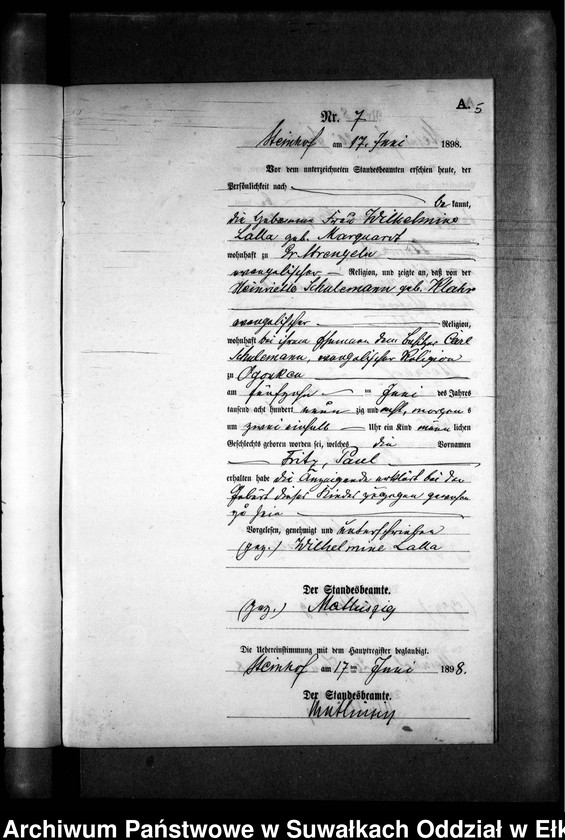 A. 5
Nr. 7
Steinhof am 17. Juni 1898.
Vor dem unterzeichneten Standesbeamten erschien heute, der
Persönlichkeit nach
be kannt,
die Hebamme Frau Wilhelmine
Lalla geb. Marquardt
wohnhaft zu Gr. Strengeln
evangelischer Religion, und zeigte an, daß von der
Heinriette Schulemann geb. Klahr
evangelischer Religion,
wohnhaft bei ihrem Ehemann dem Besitzer Carl
Schulemann, evangelischer Religion
zu Ogonken
am fünfzehn ten Juni des Jahres
tausend acht hundert neun zig und acht, morgen s
um zwei einhalb Uhr ein Kind männ lichen
Geschlechts geboren worden sei, welches die Vornamen
Fritz, Paul
erhalten habe die Anzeigende erklärt bei der
Geburt dieses Kindes zugegen gewesen
zu sein
Vorgelesen, genehmigt und unterschrieben
(gez.) Wilhelmine Lalla
Der Standesbeamte.
(gez.)
Die Uebereinstimmung mit dem Hauptregister beglaubigt.
Steinhof am 17 ten Juni 1898.
Der Standesbeamte.
Archiwum Państwowe w Suwałkach Oddział w Ełk